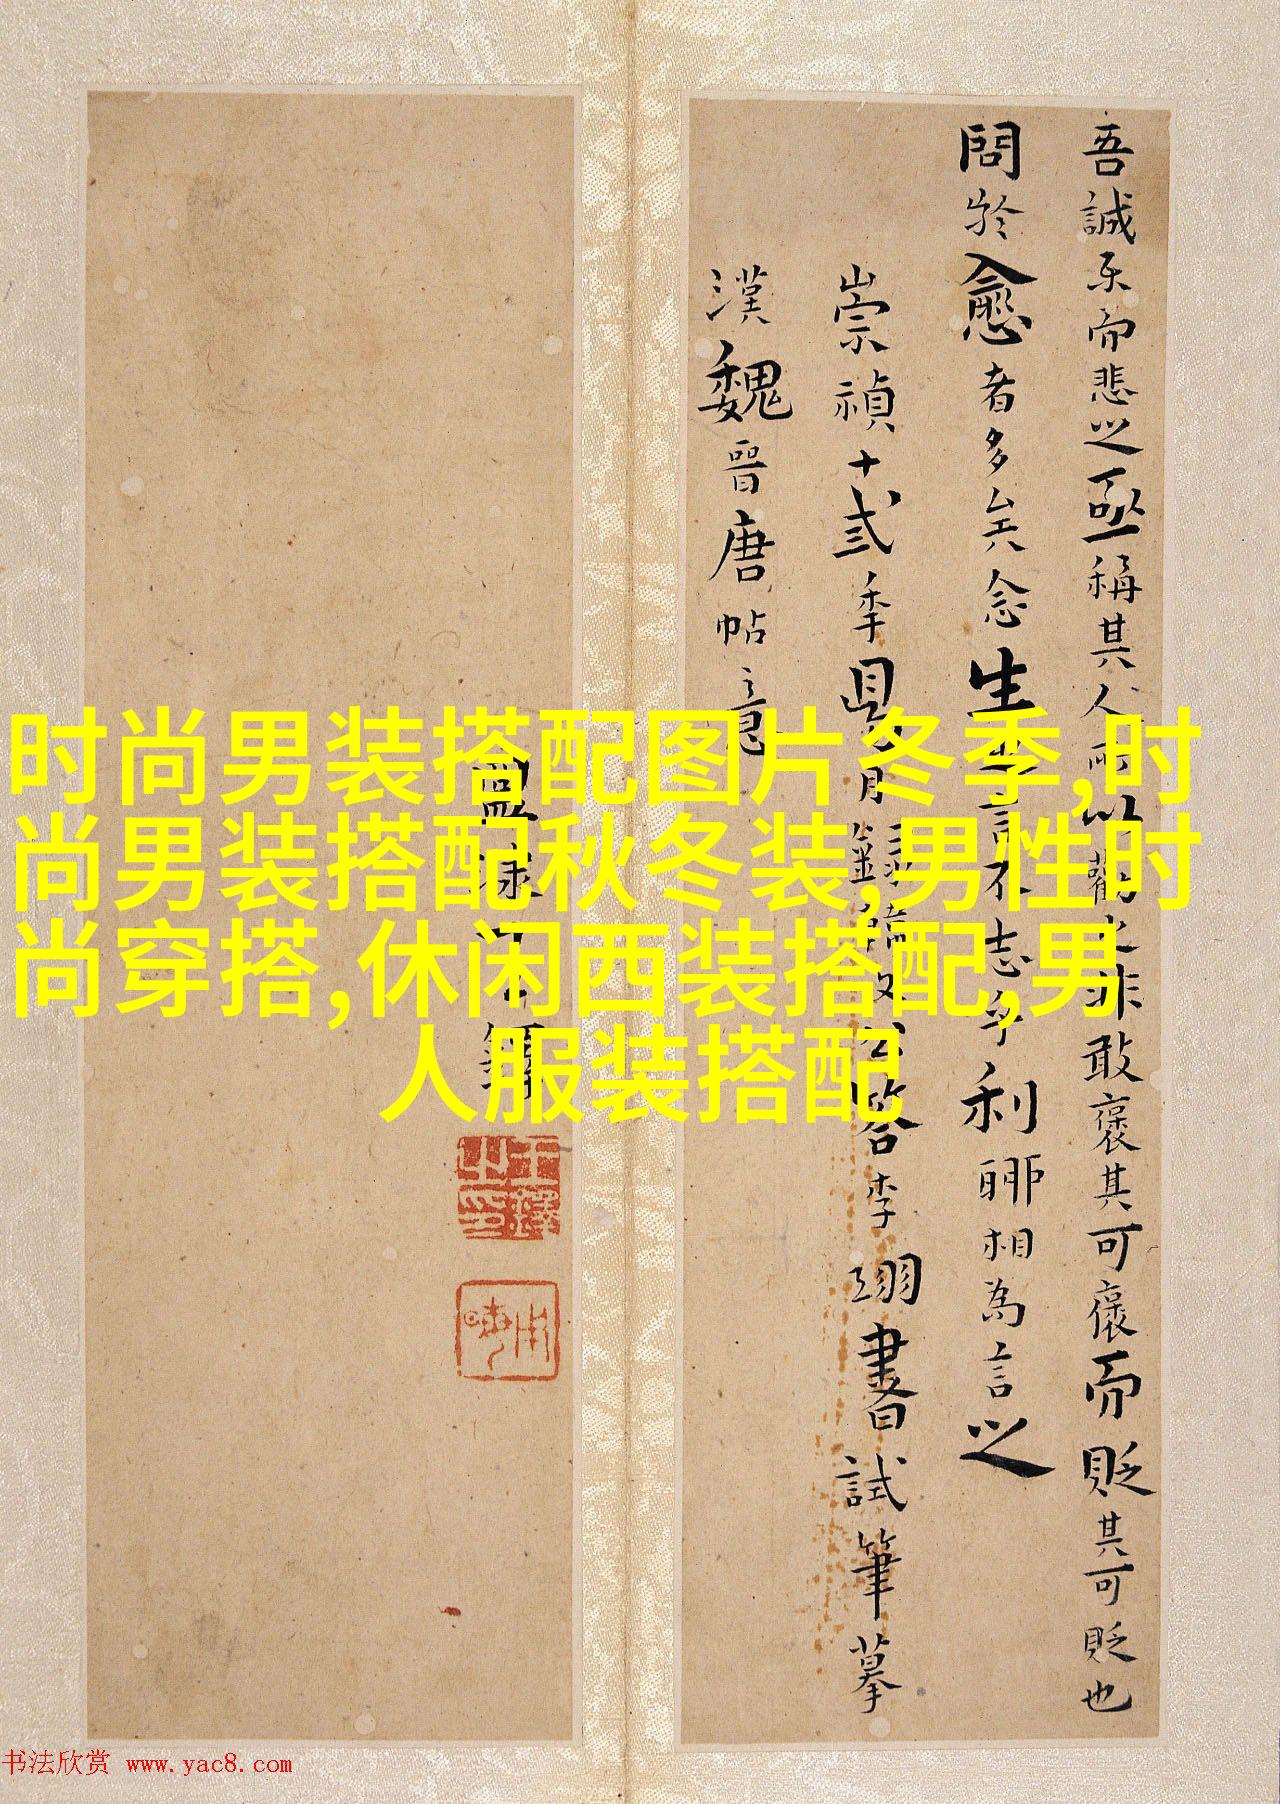 吾誠樂而悲之亟稱其人而以勸之非敢褒其可褒而貶其可貶也
問於愈者多矣念生之言不志乎利聊相為言之
崇禎十弍季
月
公答李翊書試筆摹
漢魏晉唐帖意
孟
鐸
王鐸之印
时尚男装搭配图片冬季,时
尚男装搭配秋冬装,男性时
尚穿搭,休闲西装搭配,男
人服装搭配
书法欣赏 www.yac8.com